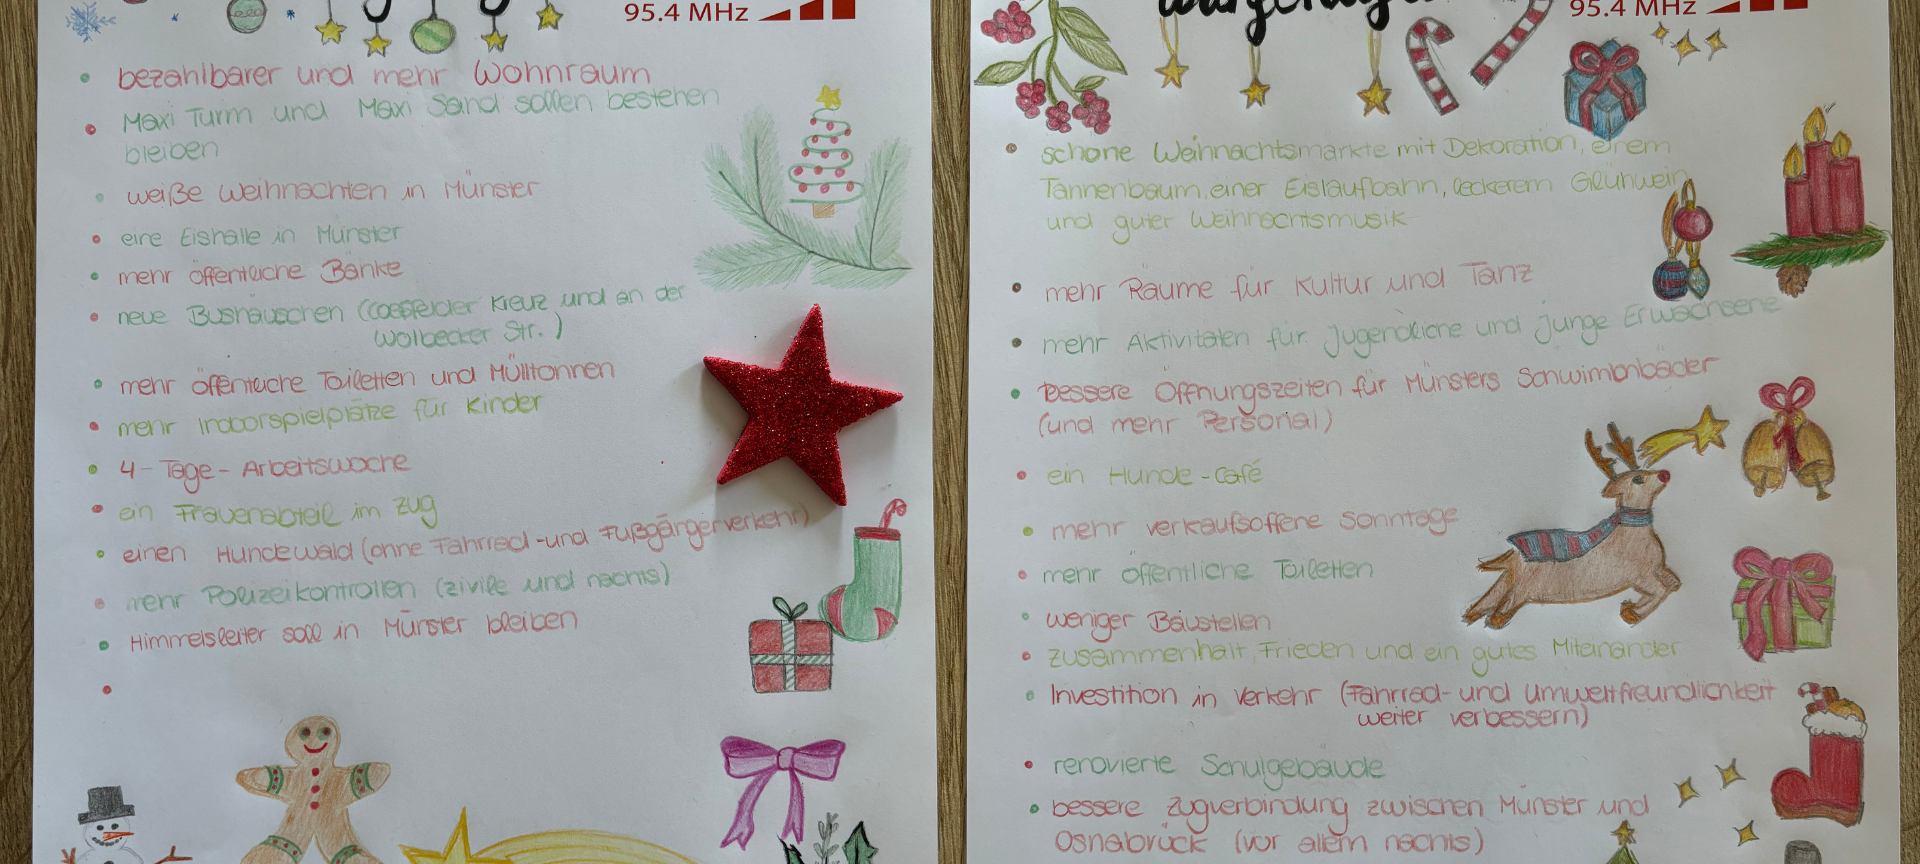 95.4 MHz
bezahlbarer und mehr Wohnraum
Maxi Turm und Maxi Sand sollen bestehen
bleiben
weiße Weihnachten in Münster
eine Eishalle in Münster
mehr öffentliche Bänke
neue Bushäuschen (Coesfelder Kreuz und an der
Wolbecker Str.)
mehr öffentliche Toiletten und Mülltonnen
mehr Indoorspielplätze für Kinder
4-Tage-Arbeitswoche
ein Frauenabteil im Zug
einen Hundewald (ohne Fahrrad-und Fußgängerverkehr)
mehr Polizeikontrollen (zivile und nachts)
Himmelsleiter soll in Münster bleiben
95.4 MHz
schöne Weihnachtsmärkte mit Dekoration, einem
Tannenbaum, einer Eislaufbahn, leckerem Glühwein
und guter Weihnachtsmusik
mehr Räume für Kultur und Tanz
mehr Aktivitäten für Jugendliche und junge Erwachsene
bessere Öffnungszeiten für Münsters Schwimmbäder
(und mehr Personal)
ein Hunde-Café
mehr verkaufsoffene Sonntage
mehr öffentliche Toiletten
weniger Baustellen
Zusammenhalt, Frieden und ein gutes Miteinander
Investition in Verkehr (Fahrrad- und Umweltfreundlichkeit
weiter verbessern)
renovierte Schulgebäude
bessere Zugverbindung zwischen Münster und
Osnabrück (vor allem nachts)